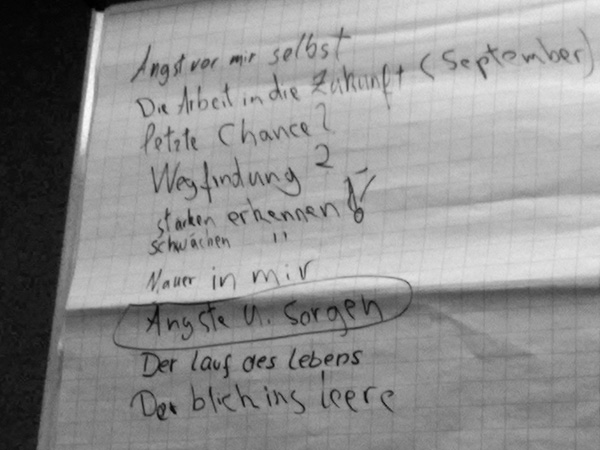 Angst vor mir selbst
Die Arbeit in die Zukunft (September)
letzte Chance?
Wegfindung ?
starken erkennen !
schwächen "
Mauer in mir
Ängste u. Sorgen
Der lauf des lebens
Der blick ins leere